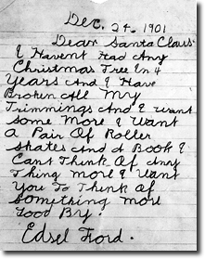 Dec. 24. 1901
Dear Santa Claus:
I Havent Had Any
Christmas Tree In 4
Years And I Have
Broken All My
Trimmings And I want
Some More I Want
A Pair Of Roller
Skates And A Book I
Cant Think Of Any
Thing more I Want
You To Think Of
Something more
Good By.
Edsel Ford.